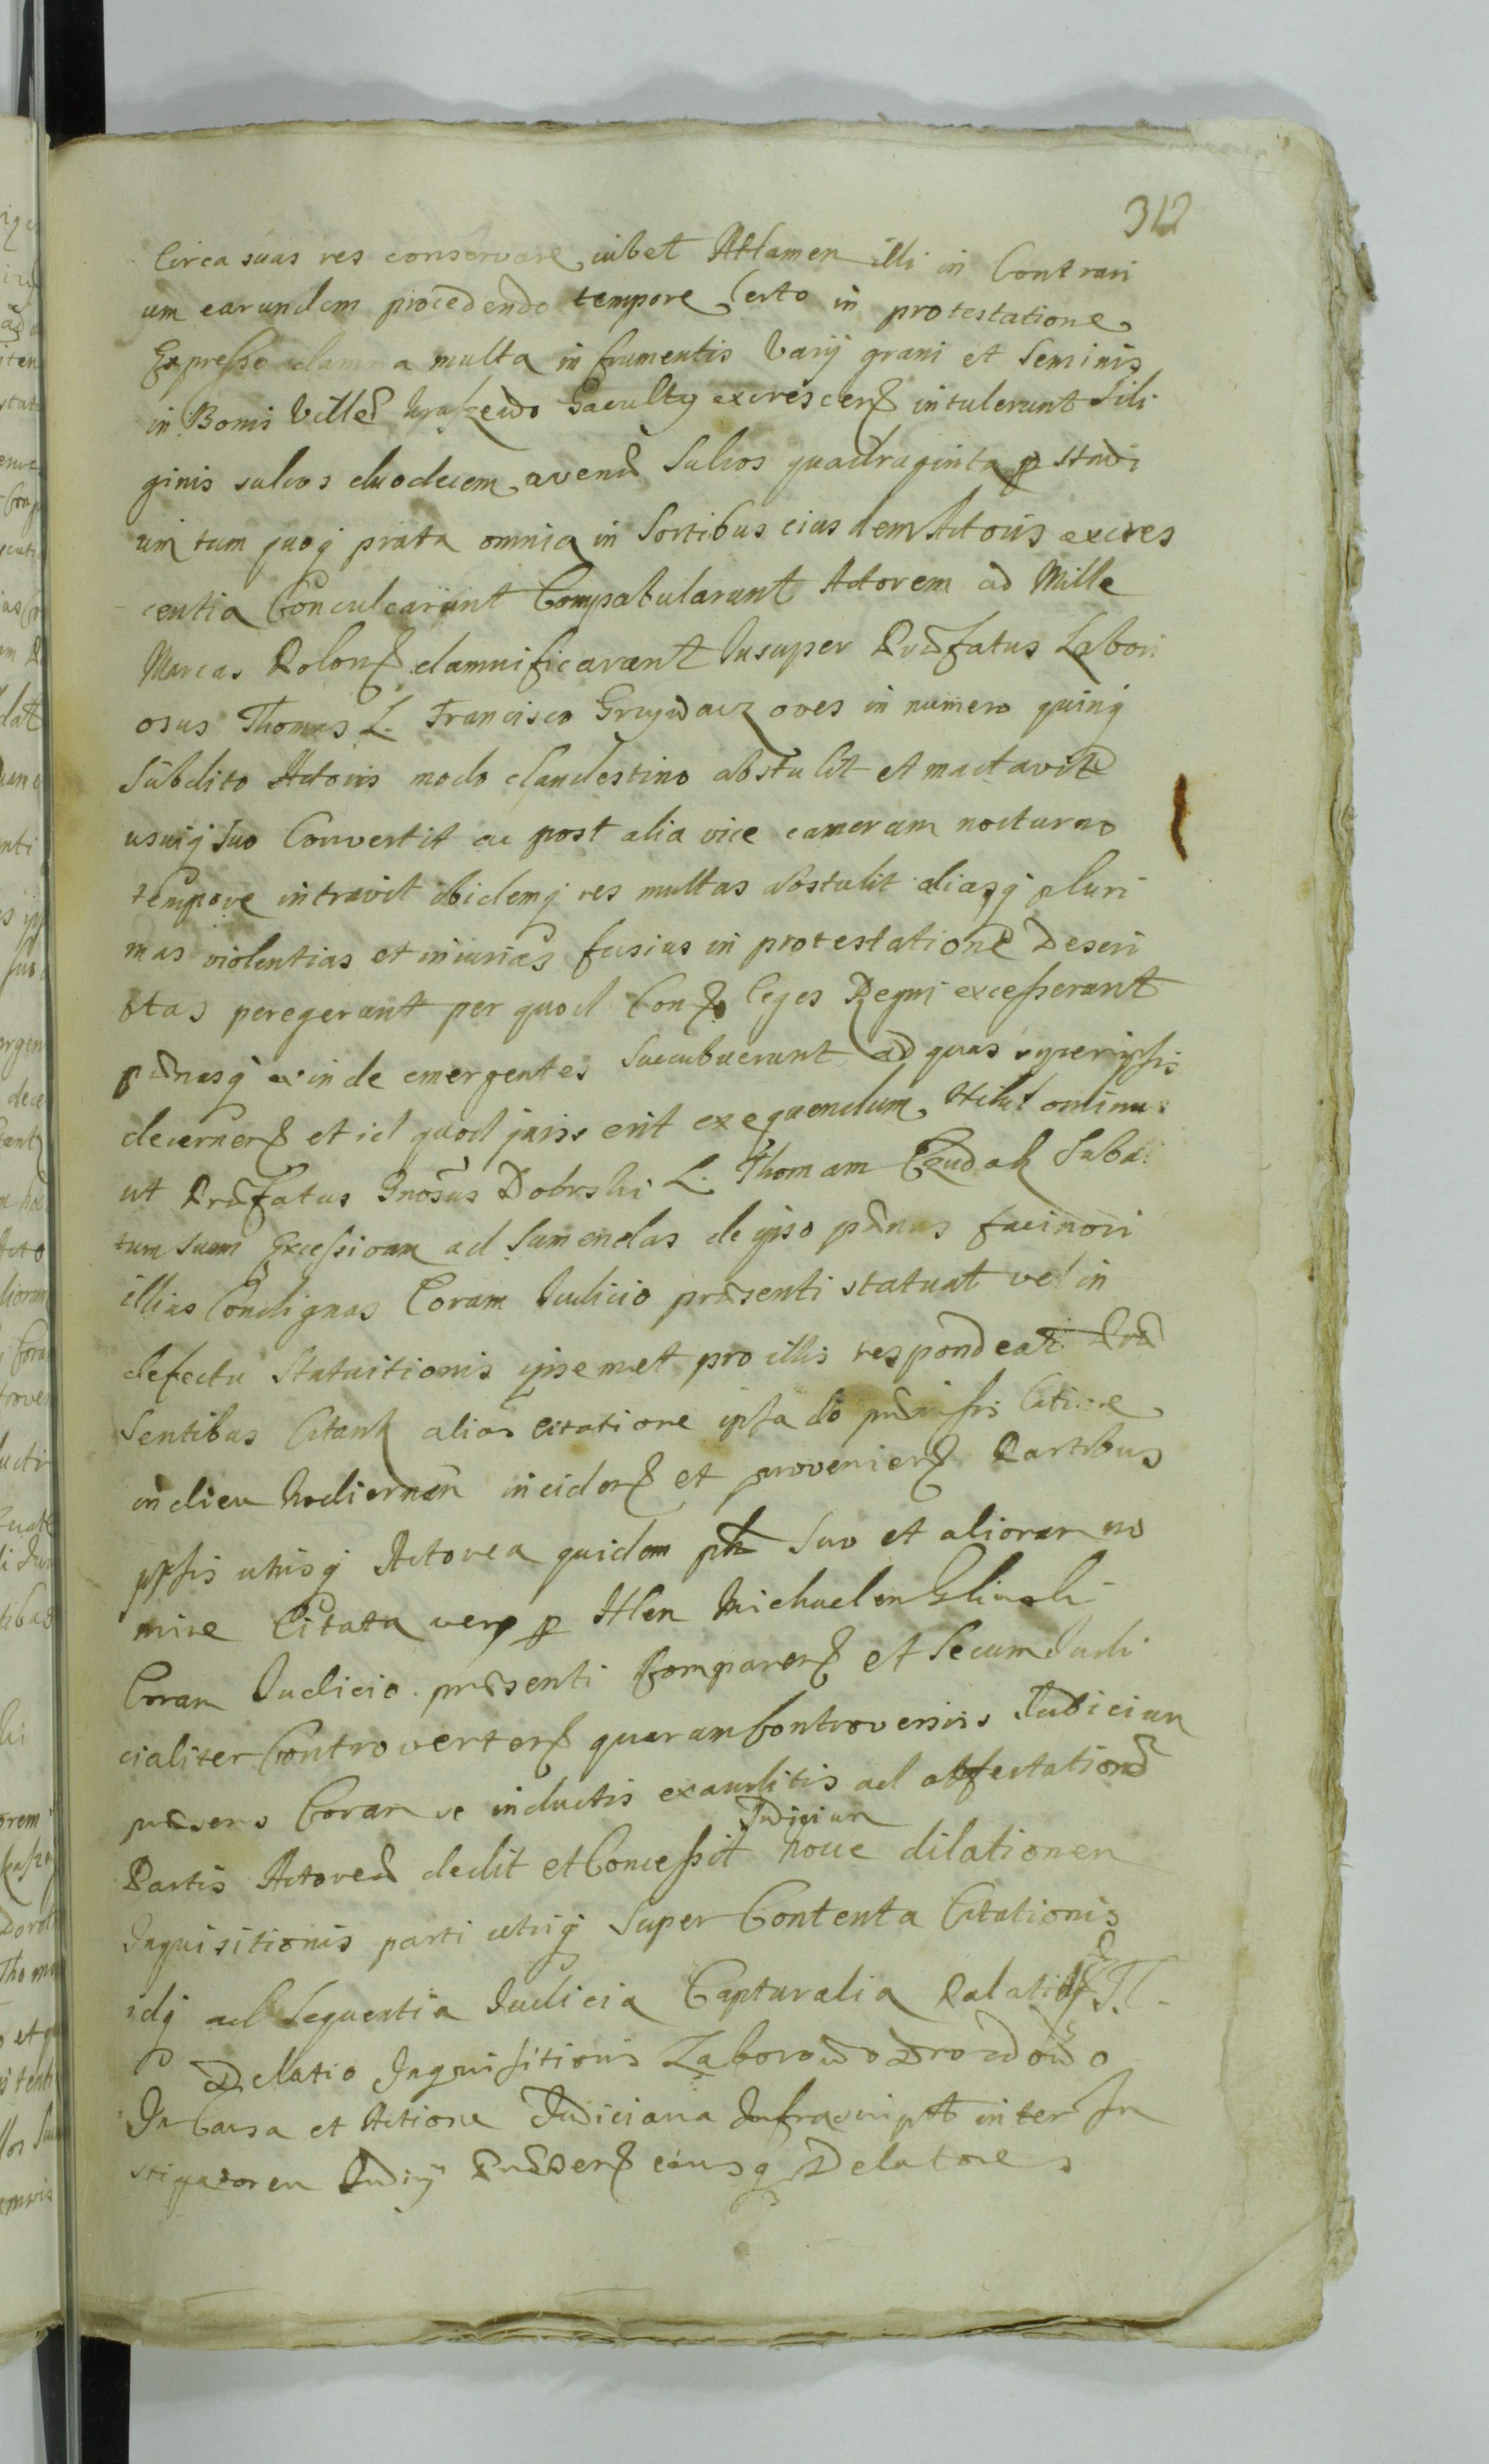 312
Circa suas res conservare iubet Attamen illi in Contrari
um earundem procedendo tempore certo in protestatione
Expresso damna multa in frumentis varij grani et Seminis
in Bonis Villæ excrescen intulerunt Sili
ginis sulcos duodecem avenæ Sulcos quadraginta p
um tum quoq prata omnia in Sortibus eiusdem Actoris excres
centia Conculcarunt Compabularunt Actorem ad Mille
Marcas Polon damnificarunt Insuper Præfatus Labori
osus Thomas L. Francisco oves in numero quinq
Subdito Actoris modo clandestino abstulit et mactavit
usuiq suo Convertit ac post alia vice cameram nocturno
tempore intravit ibidemq res multas abstulit aliasq pluri
mas violentias et iniurias fusius in protestatione Descri
ptas peregerunt per quod Con Leges Regni excesserunt
pænasq exinde emergentes Succubuerunt ad quas super ipsis
decernen et id quod juris erit exequendum. Nihilominus
ut Præfatus Gnosus Dobrski L. Thomam Czudak Subdi
tum suum Excessivum ad Sumendas de ipso pænas facinori
illius Condignas Coram Iudicio præsenti statuat vel in
defectu Statuitionis ipsemet pro illis respondeat Præ
sentibus Citant alias citatione ipsa do præmissis
in diem hodiernam inciden et provenien Partibus
ppsis utrisq Actorea quidem suo et aliorum no
mine Citata vero p Michaelem Glinski
Coram Iudicio præsenti Comparen et Secum Iudi
cialiter Controverten quarum Controversiis Iudicium
præsens Coram se inductis exauditis ad affectationem
Iudicium
Partis Actoreæ dedit et Concessit dilationem
Inquisitionis parti utriq Super Contenta Citationis
idq ad Sequentia Iudicia Capturalia Palatin
Delatio Inquisitionis Zaborowo Drozdowo
In Causa et Actione Iudiciaria Infrascript inter In
stigatorem Iudiij Præsen eiusq Delatores